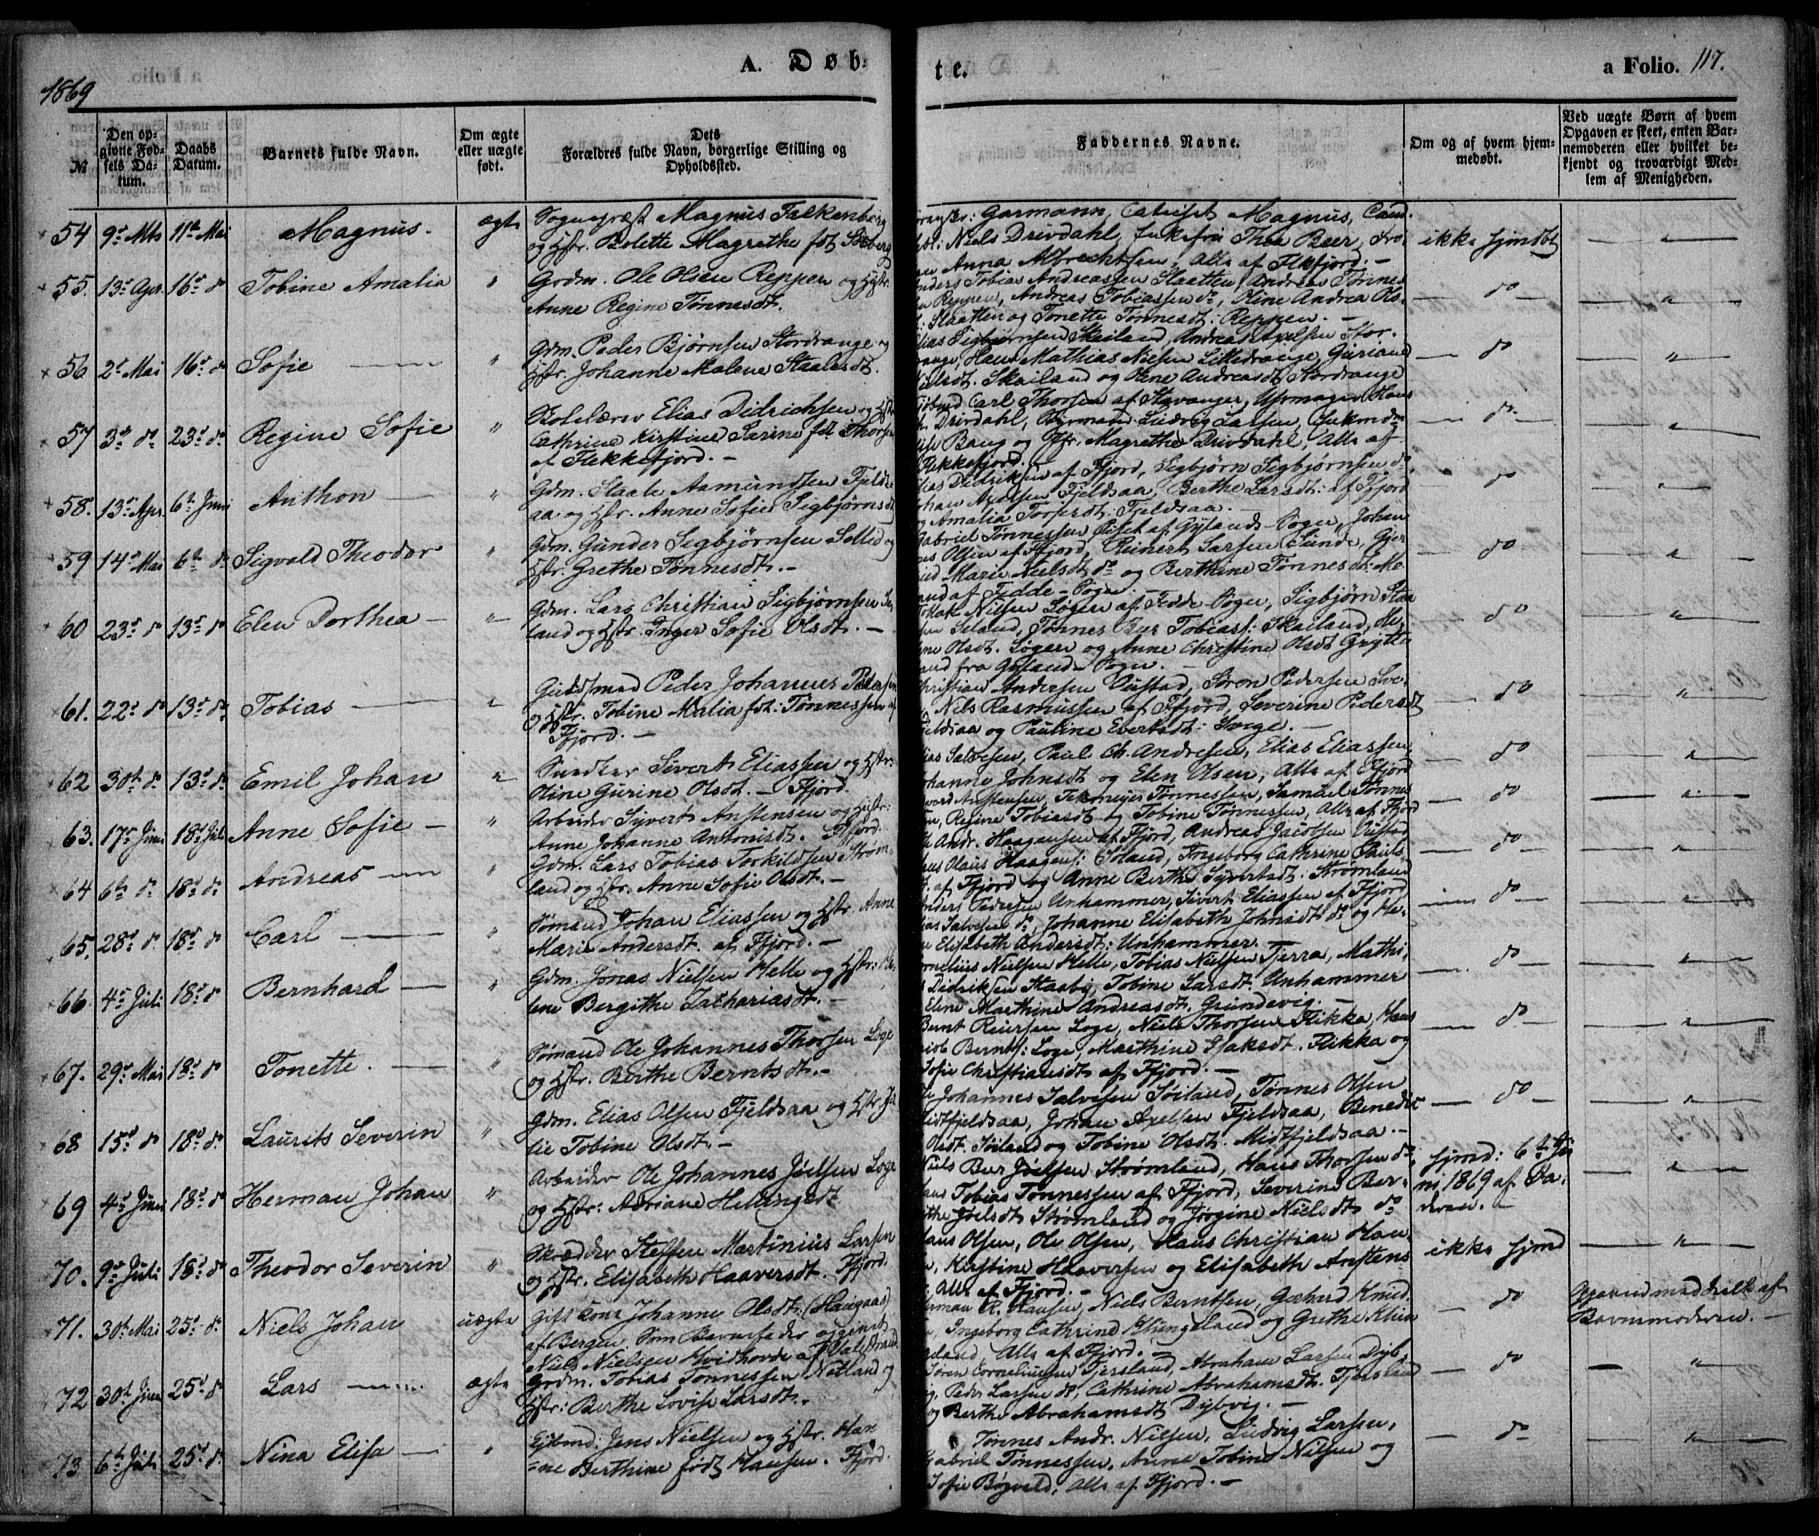 1869
A. Døb-
te.
a Folio. 117.
№
Den op-
givne Fød-
sels Da-
tum.
Daabs
Datum.
Barnets fulde Navn.
Om ægte
eller uægte
født.
Dets
Forældres fulde Navn, borgerlige Stilling og
Opholdssted.
Faddernes Navne.
Om og af hvem hjem-
medøbt.
Ved uægte Børn af hvem
Opgaven er skeet, enten Bar-
nemoderen eller hvilket be-
kjendt og troværdigt Med-
lem af Menigheden.
54 9de Mts 11te Mai Magnus. ægte
Sognepræst Magnus Falkenberg
og Hstr. Bolette Magrethe fdt
Garmann, Magnus, Cand.
Niels Drivdahl, Enkefru Thea Beer,
Anna Albrechtsen, Alle af Flekfjord. —
ikke hjmdbt
55. 13de Apr. 16de do Tobine Amalia "
Grdm. Ole Olsen Reppen og Hstr.
Anne Regine Tønnesdt.
Tobias Andreassen Slaatten, Andreas Tønnes
Reppen, Andreas Tobiassen do, Oline Andrea Ols-
Slaatten og Tonette Tønnesdt. Reppen. —
do
56. 2de Mai 16de do Sofie "
Gdm. Peder Bjørnsen Stordrange og
Hstr. Johanne Malene Staalesdt.
Sigbjørnsen Skailand, Andreas Axelsen Stor-
ange, Hans Mathias Nielsen Lilledrange, Guriane
Nielsdt. Skailand og Andreasdt Stordrange
do
57 3de do 23de do Regine Sofie "
Elias Didrichsen og Hstr
Cathrine Kirstine Sarine fdt Thorsen
af Flekkefjord. —
Carl Thorsen af Stavanger, Uhrmager Hans
Drivdahl, Styrmand Ludvig Larsen,
Baug og Jfr. Magrethe Drivdahl, Alle af
Flekkefjord. —
do
58. 13de Apr. 6te Juni Anthon "
Gdm. Staale Aamundsen Fjelds-
aa og Hstr. Anne Sofie Sigbjørnsdt
Elias Didriksen af Ffjord, Sigbjørn Sigbjørnsen do,
Johan Axelsen Fjeldsaa, Berthe Larsdt. af Ffjord
og Amalia Torjersdt. Fjeldsaa. —
do
59 14de Mai 6te do Sigvald Theodor "
Gdm. Gunder Sigbjørnsen Sellid og
Hstr. Grethe Tønnesdt. —
Gabriel Tønnessen af Gylands Sogn, Johan
Olsen af Ffjord, Reinert Larsen Eiunde, Gjer
Marie Nielsdt do og Berthine Tønnesdt: Mo
land af Fedde-Sogn. —
do
60 23de do 13de do Elen Dorthea "
Gdm. Lars Christian Sigbjørnsen Se-
land og Hstr. Inger Sofie Olsdt. —
Nilsen Løgen af Fedde Sogn, Sigbjørn Staa
Seland, Tønnes Ber Tobias: Skailand, He-
Olsdt. Løgen og Anne Christine Olsdt Gryte-
land fra Gylands Sogn. —
do
61. 22de do 13de do Tobias "
Peder Johannes Pedersen
og Hstr. Tobine Malia fdt: Tønnessen af
Ffjord. —
Christian Andersen Øustad, Søren Pedersen
Nils Rasmussen af Ffjord, Severine Pedersdt
Fjeldsaa og Pauline Evertsdt: Svege. —
do
62 30te do 13de do Emil Johan "
Snedker Sivert Eliassen og Hstr:
Oline Gurine Olsdt. — Ffjord.
Elias Salvesen, Paul Ch. Andresen, Elias Eliassen,
Johanne Johnsdt og Elen Olsen, Alle af Ffjord
do
63. 17de Juni 18de Juli Anne Sofie "
Arbeider Syvert Anstensen og Hstr:
Anne Johanne Antonisdt. Ffjord.
Anstensen, Tønnessen, Samuel Tønnes
Regine Tobiasdt og Tobine Tønnessen, Alle af Ffjord
do
64 6te do 18de do Andreas "
Gdm. Lars Tobias Torkildsen Strøm-
land og Hstr. Anne Sofie Olsdt. —
Andr. Haagensen af Ffjord, Andreas Jacobsen Øustad,
Olaus Haagens: Soland, Ingeborg Cathrine Pauls-
af Ffjord og Anne Berthe Syvertsdt. Strømland
do
65. 28de do 18de do Carl "
Sømand Johan Eliassen og Hstr. Anne
Marie Andersdt. af Ffjord. —
Anders Pedersen Unhammer, Sivert Eliassen af Ffjord
Elias Salvesen do, Johanne Elisabeth Johnsdt do og He-
Elisabeth Andersdt: Unhammer. —
do
66 4de Juli 18de do Bernhard "
Gdm. Jonas Nielsen Helle og Hstr:
ene Bergithe Zachariasdt. —
Cornelius Nielsen Helle, Tobias Nielsen Tjerra, Mathi-
Didriksen Staaby, Tobine Larsdt Unhammer
Elene Marthine Andreasdt. Grundevig. —
do
67. 29de Mai 18de do Tonette. "
Sømand Ole Johannes Thorsen Loge
og Hstr. Berthe Berntsdt. —
Bernt Reiersen Loge, Niels Thorsen Flikka, Hans
Jacob Bernts: Loge, Marthine Isaksdt. Flikka og
Sofie Christiansdt af Ffjord. —
do
68 15de do 18de do Laurits Severin "
Gdm. Elias Olsen Fjeldsaa og Hstr. Ja-
Tobine Olsdt. —
Johannes Salvesen Søiland, Tønnes Olsen
Midtfjeldsaa, Johan Axelsen Fjeldsaa, Benedic
Olsdt. Søiland og Tobine Olsdt. Midtfjeldsaa. —
do
69 4de Juni 18de do Herman Johan "
Arbeider Ole Johannes Joelsen Loge
og Hstr: Adriane Hellingsdt
Niels Ber Joelsen Strømland, Hans Thorsen do,
Hans Tobias Tønnessen af Ffjord, Severine Ber-
the Joelsdt Strømland og Jørgine Nielsdt do
hjmd: 6te Ju
ni 1869 af Fa-
deren. —
70. 9de Juli 18de do Theodor Severin "
Skrædder Steffen Martinius Larsen
og Hstr: Elisabeth Haaversdt. Ffjord
Hans Olsen, Ole Olsen, Hans Christian Han
Kristine Haaversen og Elisabeth Anstens
Alle af Ffjord. —
ikke hjmd
71. 30te Mai 25de do Niels Johan uægte
Gift Kone Johanne Olsdt. (Haugaas)
af Bergen Som Barnefader opgivet
Niels Nielsen Hvidhovde af
Herman R. Hansen, Niels Berntsen, Gerhard Knud
Ingeborg Cathrine Klungeland og Grethe Klun
geland Alle af Ffjord. —
do
Gjørdemødersk af
Barnemoderen. —
72 30te Juni 25de do Lars ægte
Grdm. Tobias Tønnessen Netland og
Hstr: Berthe Lovise Larsdt. —
Søren Corneliusen Fjersland, Abraham Larsen Dyb-
vig, Peder Larsen do, Cathrine Abrahamsdt. Fjersland
og Berthe Abrahamsdt Dybvig. —
do
73 6te Juli 25de do Nina Elise "
Jens Nielsen og Hstr. Han
ne Berthine født Hansen. Ffjord.
Tønnes Andr. Nilsen, Ludvig Larsen,
Gabriel Tønnessen, Anne Tobine Nilsen og
Sofie Bøgvald, Alle af Ffjord. —
do